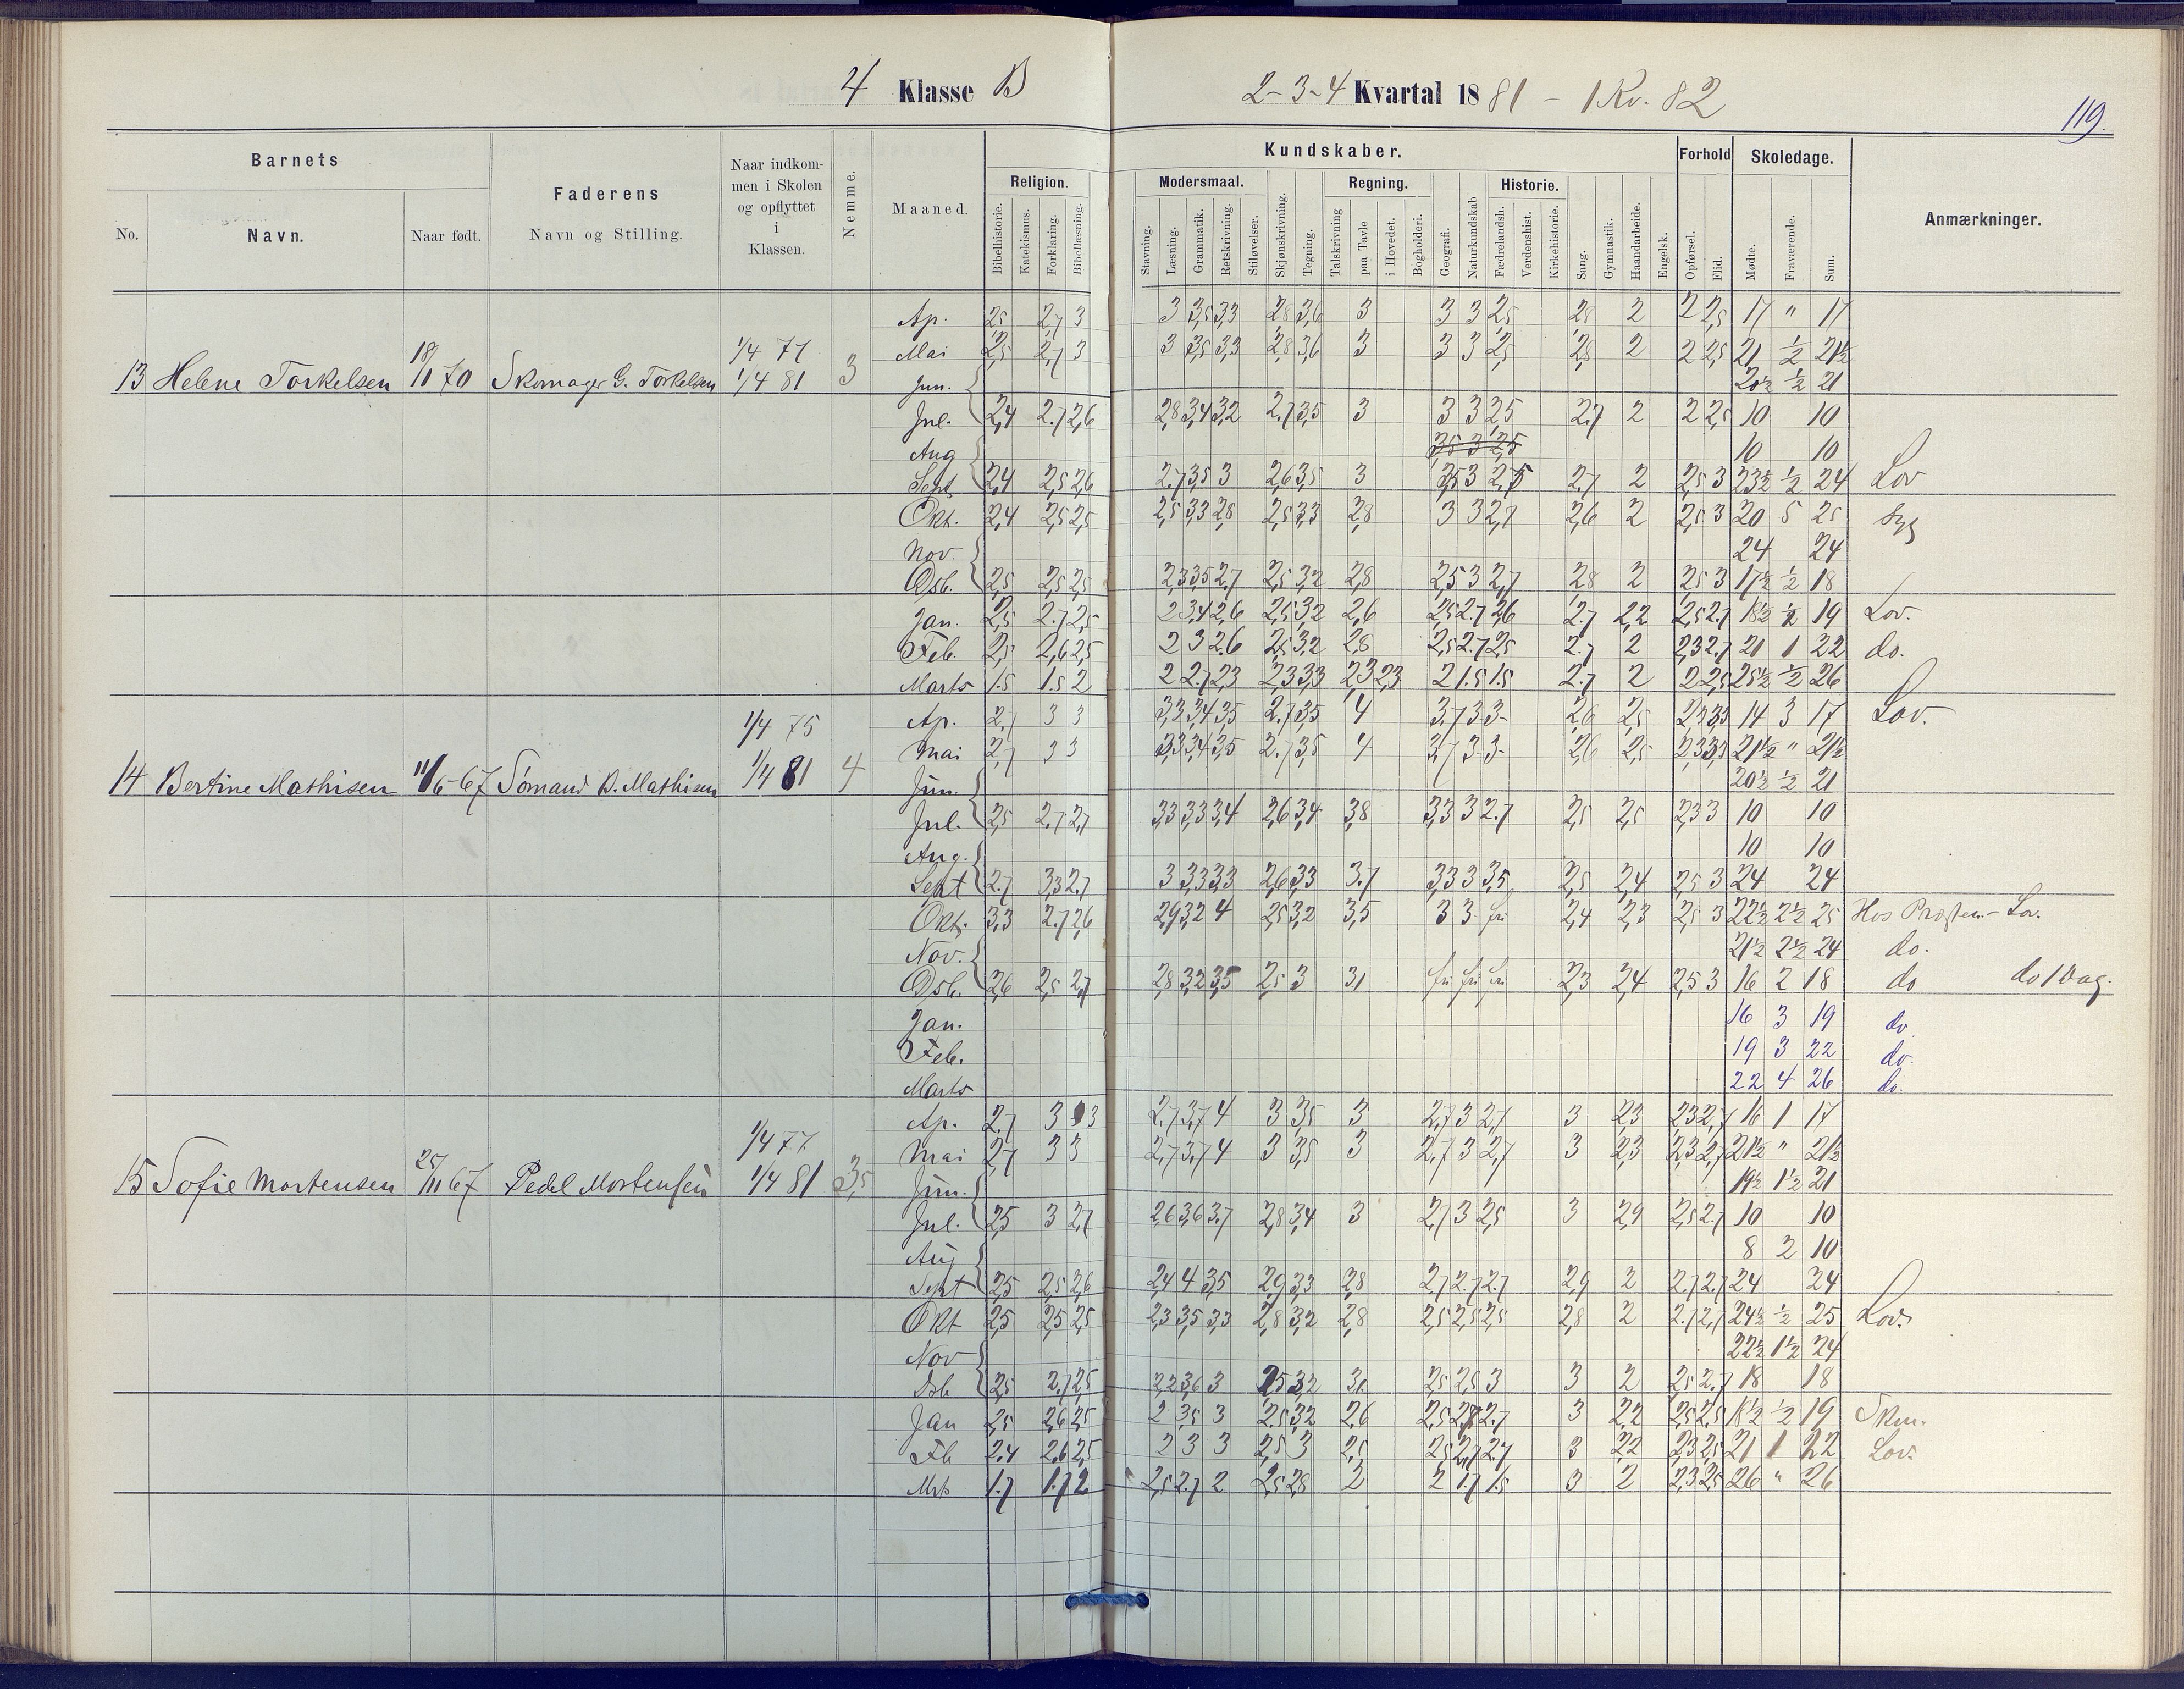 4 Klasse B
2-3-4 Kvartal 1881 - 1 Kv. 82
119.
Barnets
No.
Navn.
Naar født.
Faderens
Navn og Stilling.
Naar indkom-
men i Skolen
og opflyttet
i
Klassen.
Nemme.
Maaned.
Kundskaber.
Religion.
Bibelhistorie.
Katekismus.
Forklaring.
Bibellæsning.
Modersmaal.
Stavning.
Læsning.
Grammatik.
Retskrivning.
Stiløvelser.
Skjønskrivning
Tegning.
Regning.
Talskrivning
paa Tavle
i Hovedet.
Bogholderi.
Geografi.
Naturkundskab
Historie.
Fædrelandsh.
Verdenshist.
Kirkehistorie.
Sang.
Gymnastik.
Haandarbeide.
Engelsk.
Forhold
Opførsel.
Flid.
Skoledage.
Mødte.
Fraværende.
Sum.
Anmærkninger.
13 Helene Torkelsen 18/11 70 Skomager G. Torkelsen 1/4 77 1/4 81 3
Ap. 2,5 2,7 3 3 3,5 3,3 2,8 3,6 3 3 3 2,5 2,8 2 2 2,5 17 " 17
Mai 2,5 2,7 3 3 3,5 3,3 2,8 3,6 3 3 3 2,5 2,8 2 2 2,5 21 ½ 21½
Jun. 20½ ½ 21
Jul. 2,4 2,7 2,6 2,8 3,4 3,2 2,7 3,5 3 3 3 2,5 2,7 2 2 2,5 10 10
Aug 3,5 3 2,5 10 10
Sept 2,4 2,5 2,6 2,7 3,5 3 2,6 3,5 3 3,5 3 2,75 2,7 2 2,5 3 23½ ½ 24 Lov
Okt. 2,4 2,5 2,5 2,5 3,3 2,8 2,5 3,3 2,8 3 3 2,7 2,6 2 2,5 3 20 5 25 Syg
Nov. 24 24
Dsb. 2,5 2,5 2,5 2,3 3,5 2,7 2,5 3,2 2,8 2,5 3 2,7 2,8 2 2,5 3 17½ ½ 18
Jan. 2,5 2,7 2,5 2 3,4 2,6 2,5 3,2 2,6 2,5 2,7 2,6 2,7 2,2 2,5 2,7 18½ ½ 19 Lov.
Feb. 2,5 2,6 2,5 2 3 2,6 2,5 3,2 2,8 2,5 2,7 2,5 2,7 2 2,3 2,7 21 1 22 do.
Marts 1.5 1.5 2 2 2,7 2,3 2,3 3,3 2,3 2,3 2 1.5 1.5 2,7 2 2 2,5 25½ ½ 26
14 Bertine Mathisen 11/6-67 Sömand B. Mathisen 1/4 75 1/4 81 4
Ap. 2,7 3 3 3,3 3,4 3,5 2,7 3,5 4 3,7 3 3- 2,6 2,5 2,3 3,3 14 3 17 Lov.
Mai 2,7 3 3 3,3 3,4 3,5 2,7 3,5 4 3,7 3 3- 2,6 2,5 2,3 3,3 21½ " 21½
Jun. 20½ ½ 21
Jul. 2,5 2,7 2,7 3,3 3,3 3,4 2,6 3,4 3,8 3,3 3 2,7 2,5 2,5 2,3 3 10 10
Aug. 10 10
Sept 2,7 3,3 2,7 3 3,3 3,3 2,6 3,3 3,7 3,3 3 3,5 2,5 2,4 2,5 3 24 24
Okt. 3,3 2,7 2,6 2,9 3,2 4 2,5 3,2 3,5 3 3 fri 2,4 2,3 2,5 3 22½ 2½ 25 Hos Prosten. - Lov.
Nov. 21½ 2½ 24 do.
Dsb. 2,6 2,5 2,7 2,8 3,2 3,5 2,5 3 3,1 fri fri fri 2,3 2,4 2,5 3 16 2 18 do do 1 Dag.
Jan. 16 3 19 do
Feb. 19 3 22 do.
Marts 22 4 26 do.
15 Sofie Mortensen 25/11 67 Pedel Mortensen 1/4 77 1/4 81 3,5
Ap. 2,7 3 3 2,7 3,7 4 3 3,5 3 2,7 3 2,7 3 2,3 2,3 2,7 16 1 17
Mai 2,7 3 3 2,7 3,7 4 3 3,5 3 2,7 3 2,7 3 2,3 2,3 2,7 21½ " 21½
Jun. 19½ 1½ 21
Jul. 2,5 3 2,7 2,6 3,6 3,7 2,8 3,4 3 2,7 3 2,5 3 2,9 2,5 2,7 10 10
Aug 8 2 10
Sept 2,5 2,5 2,6 2,4 4 3,5 2,9 3,3 2,8 2,7 2,7 2,7 2,9 2 2,7 2,7 24 24
Okt 2,5 2,5 2,5 2,3 3,5 3,3 2,8 3,2 2,8 2,5 2,5 2,5 2,8 2 2,7 2,7 24½ ½ 25 Lov.
Nov 22½ 1½ 24
Dsb 2,5 2,7 2,5 2,2 3,6 3 2,5 3,2 3,1 2,5 2,5 3 3 2 2,5 2,7 18 18
Jan 2,5 2,6 2,5 2 3,5 3 2,5 3,2 2,6 2,5 2,8 2,7 3 2,2 2,5 2,5 18½ ½ 19 Sken.
Fb 2.4 2,6 2,5 2 3 3 2,5 3 2,5 2,5 2,7 2,7 3 2,2 2,3 2,5 21 1 22 Lov.
Mrts 1.7 1.7 2 2,5 2,7 2 2,5 2,8 2 2 1.7 1.5 3 2 2,3 2,5 26 " 26